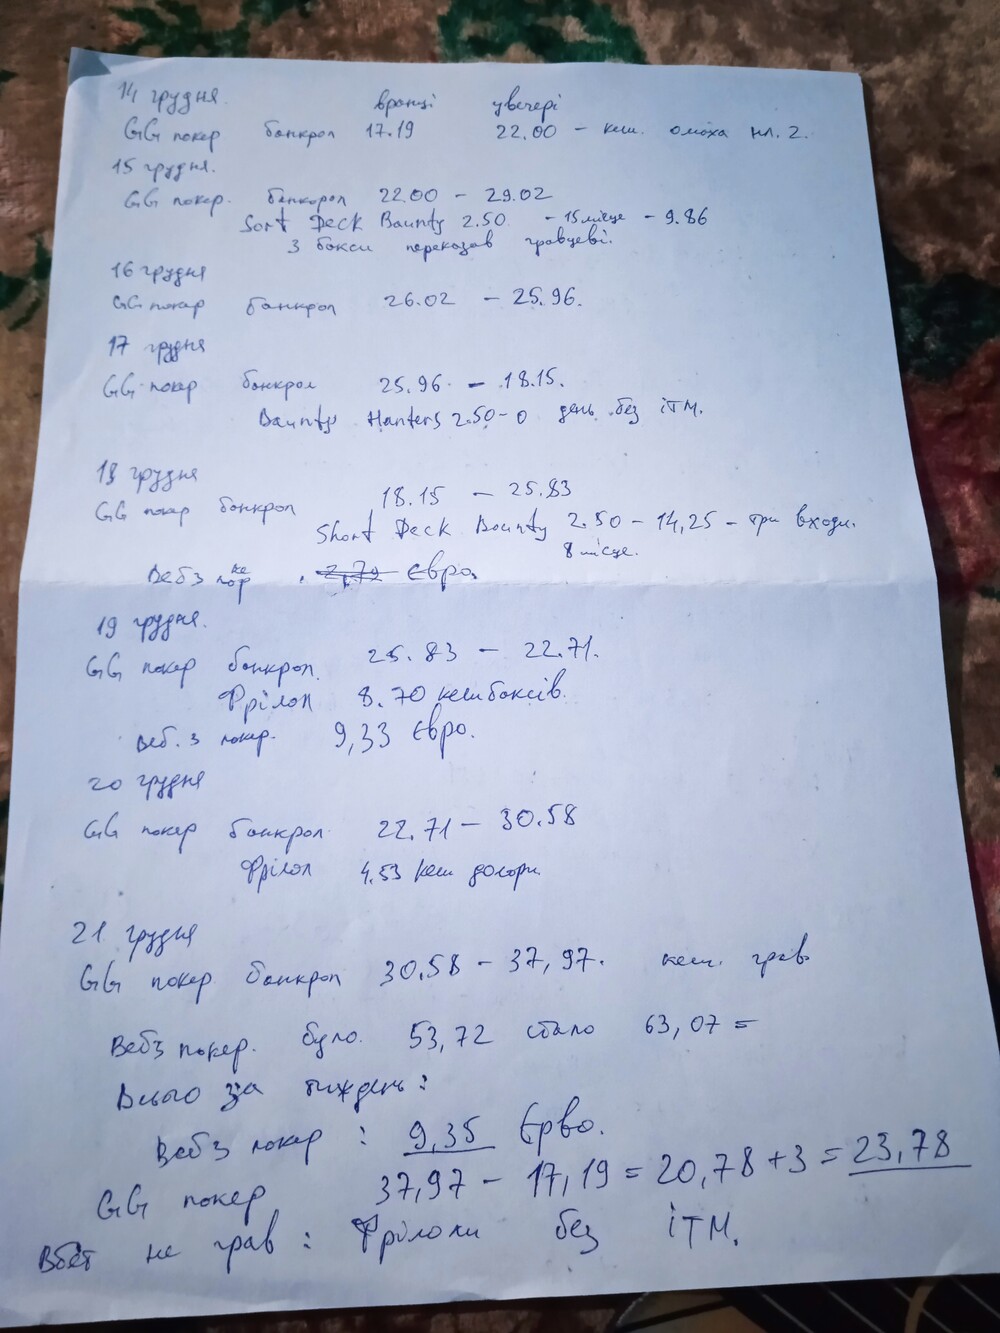 14 грудня. вранці увечері
GG покер банкрол 17.19 22.00 - кеш. омаха нл. 2.
15 грудня.
GG покер. банкорол 22.00 - 29.02
Sort Deck Baunty 2.50 - 15 місце - 9.86
3 бакси переказав гравцеві.
16 грудня
GG покер банкрол 26.02 - 25.96.
17 грудня
GG покер банкрол 25.96 - 18.15.
Baunty Hanters 2.50-0 день без ITM.
18 грудня
GG покер банкрол 18.15 - 25.83
Short Deck Baunty 2.50 - 14,25 - три входи.
8 місце.
Вебз покер. 2,79 Євро.
19 грудня.
GG покер банкрол. 25.83 - 22.71.
Фрілол 8.70 кеш баксів.
Веб.з покер. 9,33 Євро.
20 грудня
GG покер банкрол. 22.71 - 30.58
Фрілол 4.53 кеш долори.
21 грудня
GG покер банкрол 30.58 - 37,97. кеш. грав
Вебз покер. було. 53,72 стало 63,07 =
Всього за тиждень:
Вебз покер : 9,35 Єрво.
GG покер 37,97 - 17,19 = 20,78 + 3 = 23,78
не грав : Фрілоли без ITM.